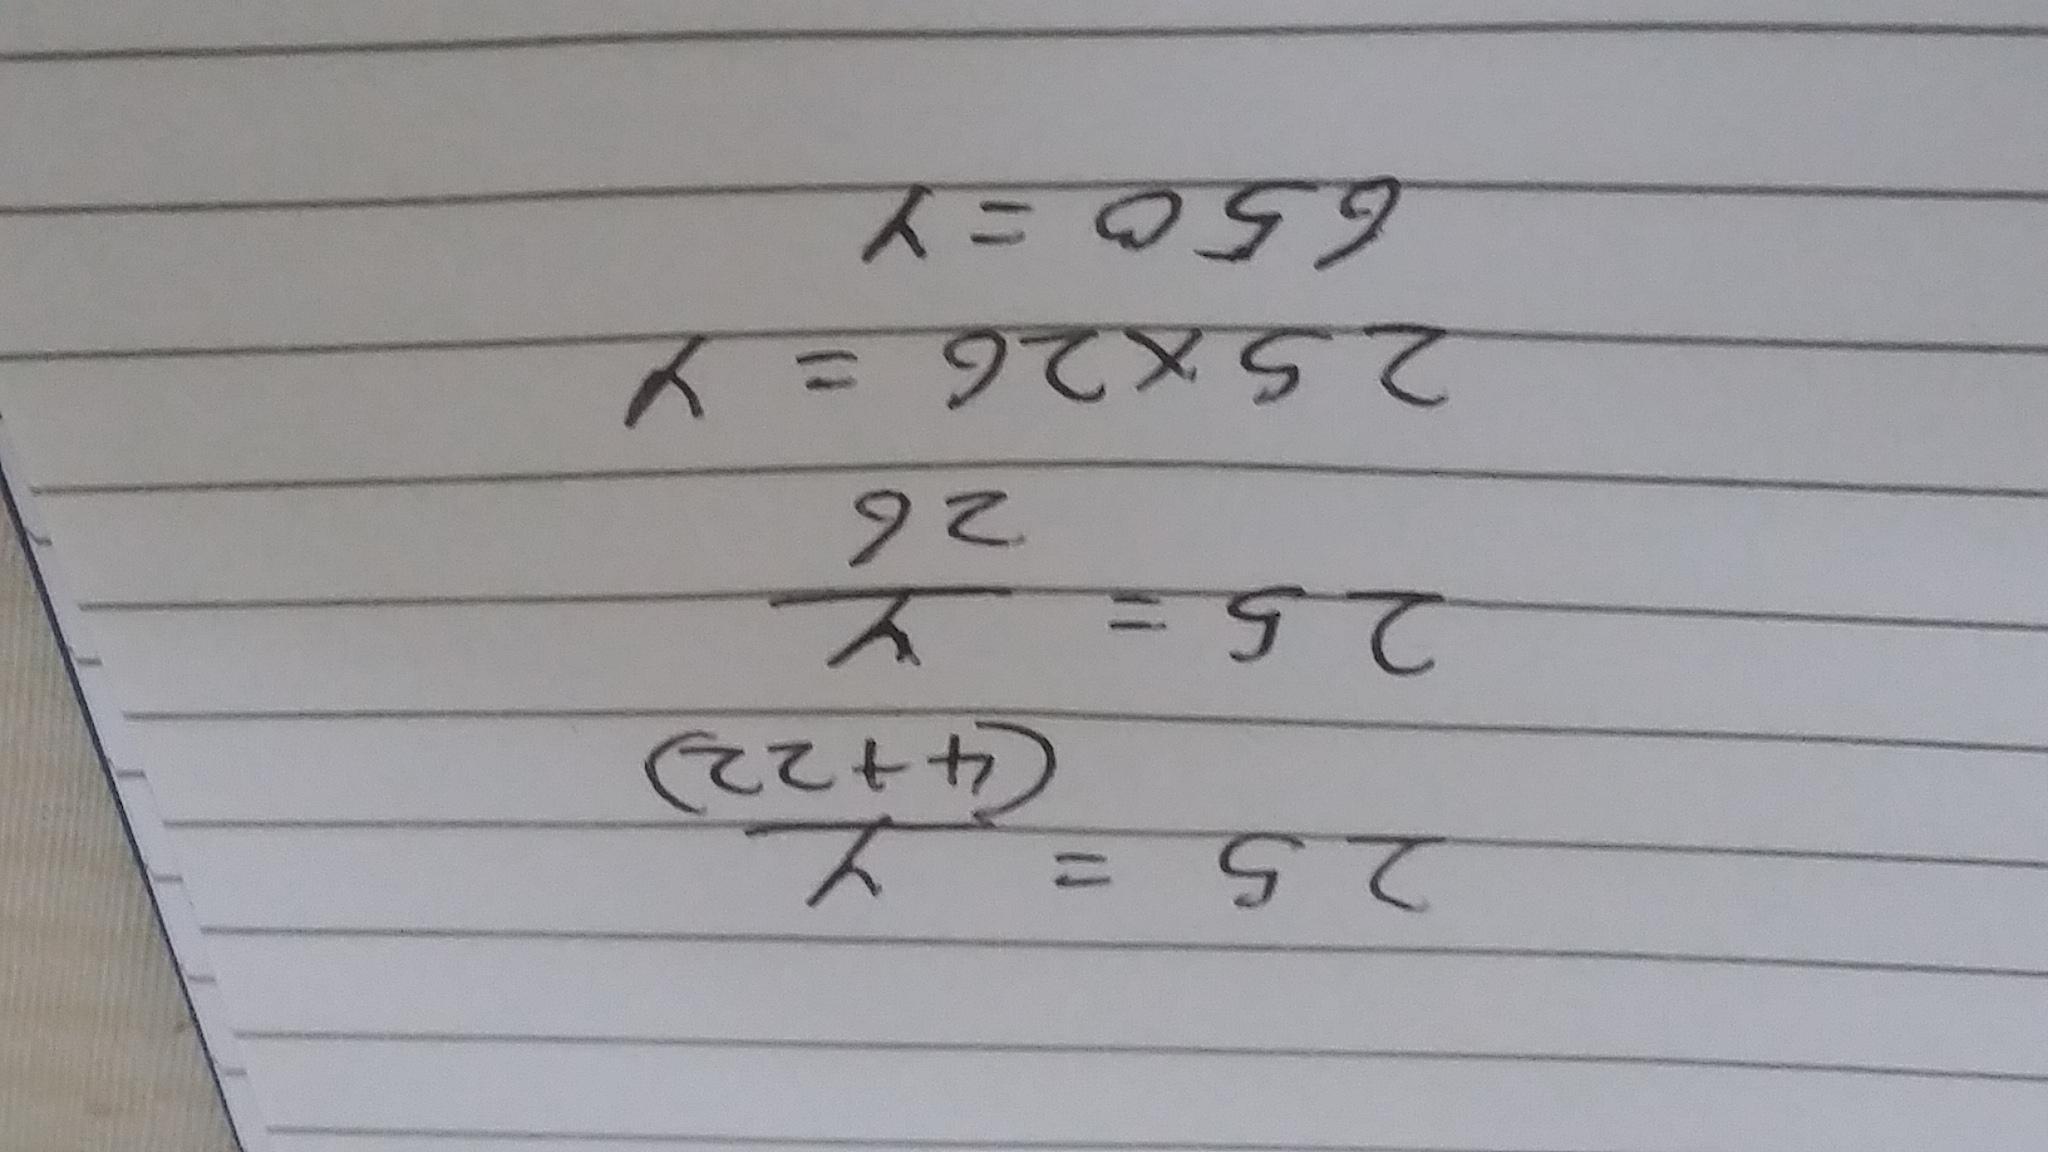 25 = Y
(4+22)
25 = Y
26
25×26 = Y
650 = Y